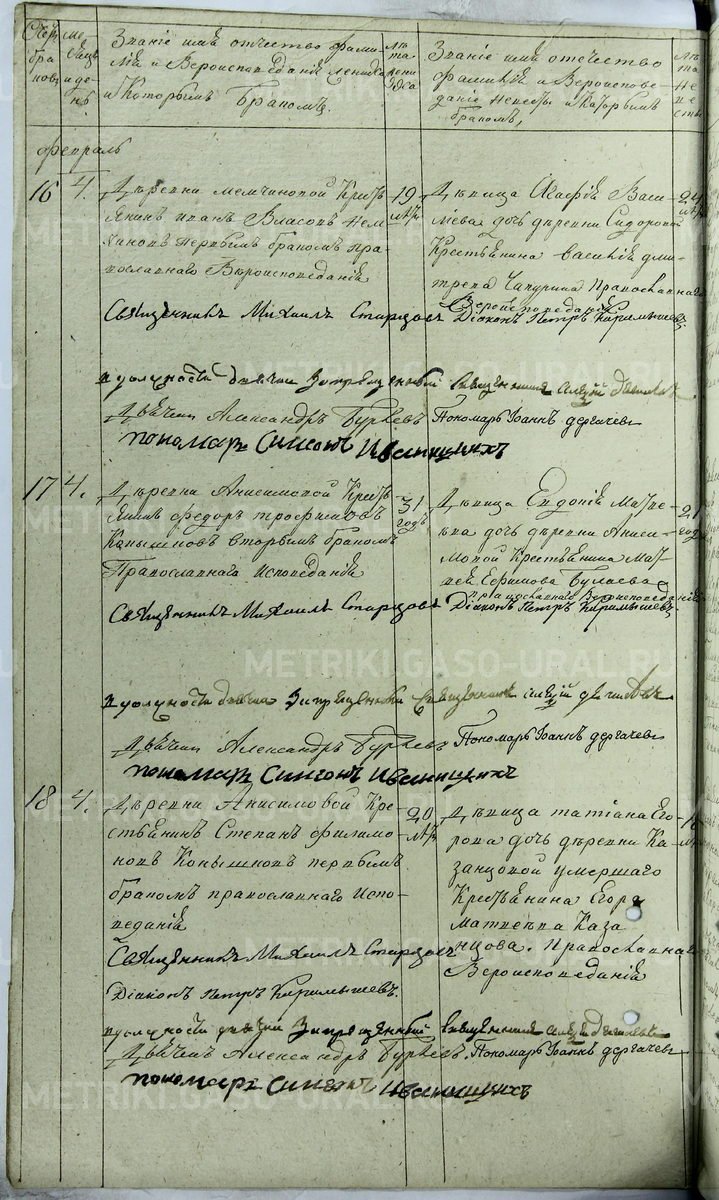 Счетъ браковъ
Месяцъ и день
Званіе имя отчество фами-
лія и Вероисповеданія жениха
и Которымъ Бракомъ.
лета жениха
Званіе имя отечество
фамилія и Вероиспове-
даніе Невесты и Которымъ
бракомъ,
лета Невесты
февраль
16 4. Деревни мемчиновой Кресть
янинъ иванъ Власовъ Нем-
чиновъ первымъ бракомъ пра-
вославнаго Вероисповеданія
19 летъ
Девица Агафія Васи-
льева дочь деревни Сидоровой
Крестьянина василія дми-
трева Чапурина Православнаго
Вероисповеданія
24
Священникъ Михаилъ Старцовъ Діаконъ Петръ Кирмышевъ
в должности дьячка Запрещенный Священникъ
Дьячекъ Александръ Бурьевъ Пономарь Іоаннъ дергачевъ
пономарь Симеонъ Иваницихъ
17 4. Деревни Анисимовой Кресть
янинъ федоръ трофимовъ
Конышковъ вторымъ бракомъ
Православнаго исповеданія
31 годъ
Девица Евдокія Матве-
ева дочь деревни Аниси-
мовой Крестьянина Мат-
вея Ефимова Булаева
православнаго Вероисповеданія
21
Священникъ Михаилъ Старцовъ Діаконъ Петръ Кирмышевъ.
в должности дьячка Запрещенный Священникъ
Дьячекъ Александръ Бурьевъ Пономарь Іоаннъ дергачевъ
пономарь Симеонъ Иваницихъ
18 4. Деревни Анисимовой Кре-
стьянинъ Степанъ филимо-
новъ Конышковъ первымъ
бракомъ православнаго Испо-
веданія
20 летъ
Девица татіана Его-
рова дочь деревни Ка-
занцовой умершаго
Крестьянина Егора
Матвеева Каза
нцова. Православнаго
Вероисповеданія
Священникъ Михаилъ Старцовъ
Діаконъ Петръ Кирмышевъ.
в должности дьячка Запрещенный Священникъ
Дьячекъ Александръ Бурьевъ. Пономарь Іоаннъ дергачевъ
пономарь Симеонъ Иваницихъ
METRIKI.GASO-URAL.RU